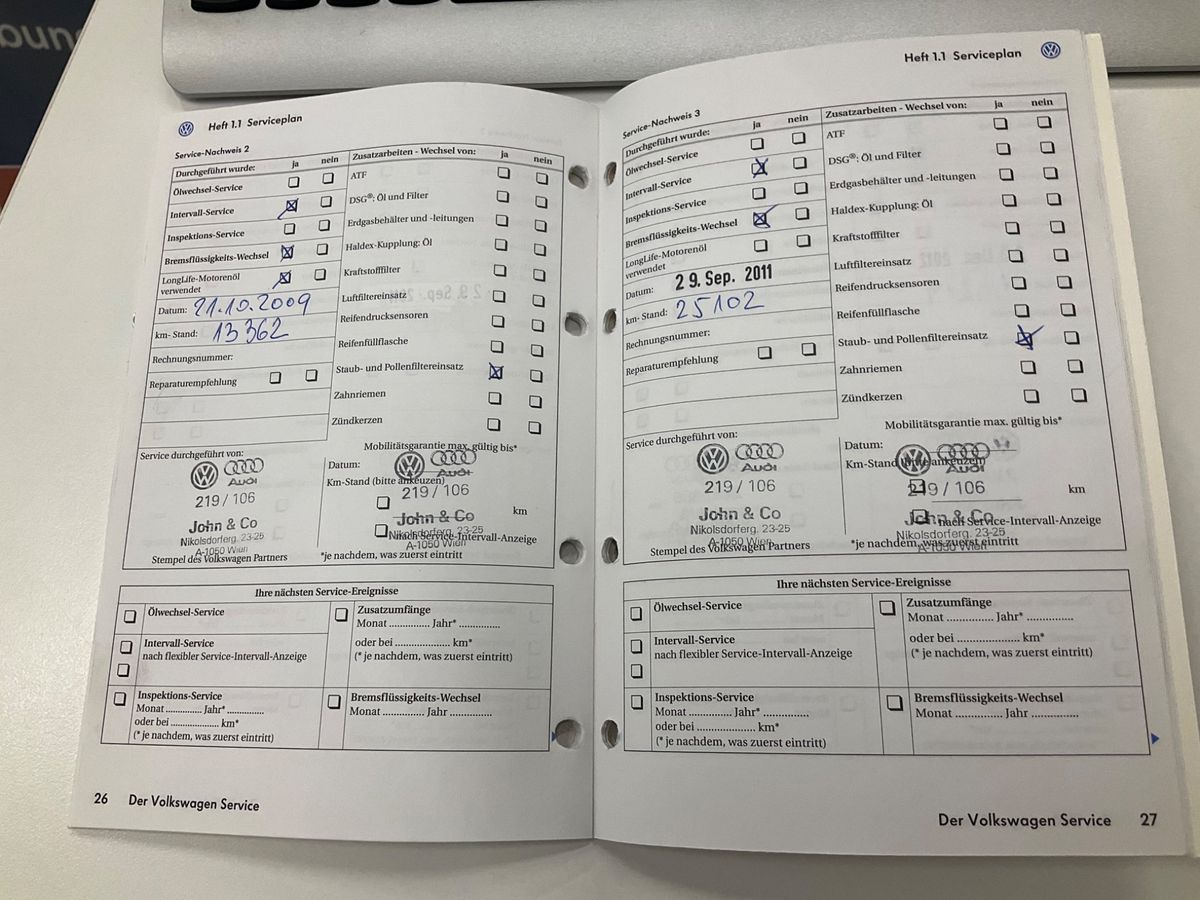 Heft 1.1 Serviceplan
Service-Nachweis 2
Durchgeführt wurde: ja nein
Ölwechsel-Service
Intervall-Service
Inspektions-Service
Bremsflüssigkeits-Wechsel
LongLife-Motorenöl
verwendet
Datum: 21.10.2009
km- Stand: 13362
Rechnungsnummer:
Reparaturempfehlung
Zusatzarbeiten - Wechsel von: ja nein
ATF
DSG®: Öl und Filter
Erdgasbehälter und -leitungen
Haldex-Kupplung: Öl
Kraftstofffilter
Luftfiltereinsatz
Reifendrucksensoren
Reifenfüllflasche
Staub- und Pollenfiltereinsatz
Zahnriemen
Zündkerzen
Service durchgeführt von:
Audi
219 / 106
John & Co
Nikolsdorferg. 23-25
A-1050 Wien
Stempel des Volkswagen Partners
Mobilitätsgarantie max. gültig bis*
Datum:
Audi
Km-Stand (bitte ankeuzen)
219 / 106
km
John & Co
Nikolsdorferg. 23-25
Nach Service-Intervall-Anzeige
A-1050 Wien
*je nachdem, was zuerst eintritt
Ihre nächsten Service-Ereignisse
Ölwechsel-Service
Intervall-Service
nach flexibler Service-Intervall-Anzeige
Inspektions-Service
Monat .............. Jahr* .............
oder bei ..................... km*
(* je nachdem, was zuerst eintritt)
Zusatzumfänge
Monat .............. Jahr* ..............
oder bei ...................... km*
(* je nachdem, was zuerst eintritt)
Bremsflüssigkeits-Wechsel
Monat .............. Jahr ..............
26 Der Volkswagen Service
Heft 1.1 Serviceplan
Service-Nachweis 3
Durchgeführt wurde: ja nein
Ölwechsel-Service
Intervall-Service
Inspektions-Service
Bremsflüssigkeits-Wechsel
LongLife-Motorenöl
verwendet
Datum: 29. Sep. 2011
km- Stand: 25102
Rechnungsnummer:
Reparaturempfehlung
Zusatzarbeiten - Wechsel von: ja nein
ATF
DSG®: Öl und Filter
Erdgasbehälter und -leitungen
Haldex-Kupplung: Öl
Kraftstofffilter
Luftfiltereinsatz
Reifendrucksensoren
Reifenfüllflasche
Staub- und Pollenfiltereinsatz
Zahnriemen
Zündkerzen
Service durchgeführt von:
Audi
219 / 106
John & Co
Nikolsdorferg. 23-25
A-1050 Wien
Stempel des Volkswagen Partners
Mobilitätsgarantie max. gültig bis*
Datum:
Km-Stand (bitte ankeuzen)
219 / 106
km
John & Co
nach Service-Intervall-Anzeige
Nikolsdorferg. 23-25
A-1050 Wien
*je nachdem, was zuerst eintritt
Ihre nächsten Service-Ereignisse
Ölwechsel-Service
Intervall-Service
nach flexibler Service-Intervall-Anzeige
Inspektions-Service
Monat .............. Jahr* ..............
oder bei ..................... km*
(* je nachdem, was zuerst eintritt)
Zusatzumfänge
Monat .............. Jahr* ..............
oder bei ...................... km*
(* je nachdem, was zuerst eintritt)
Bremsflüssigkeits-Wechsel
Monat .............. Jahr ..............
Der Volkswagen Service 27